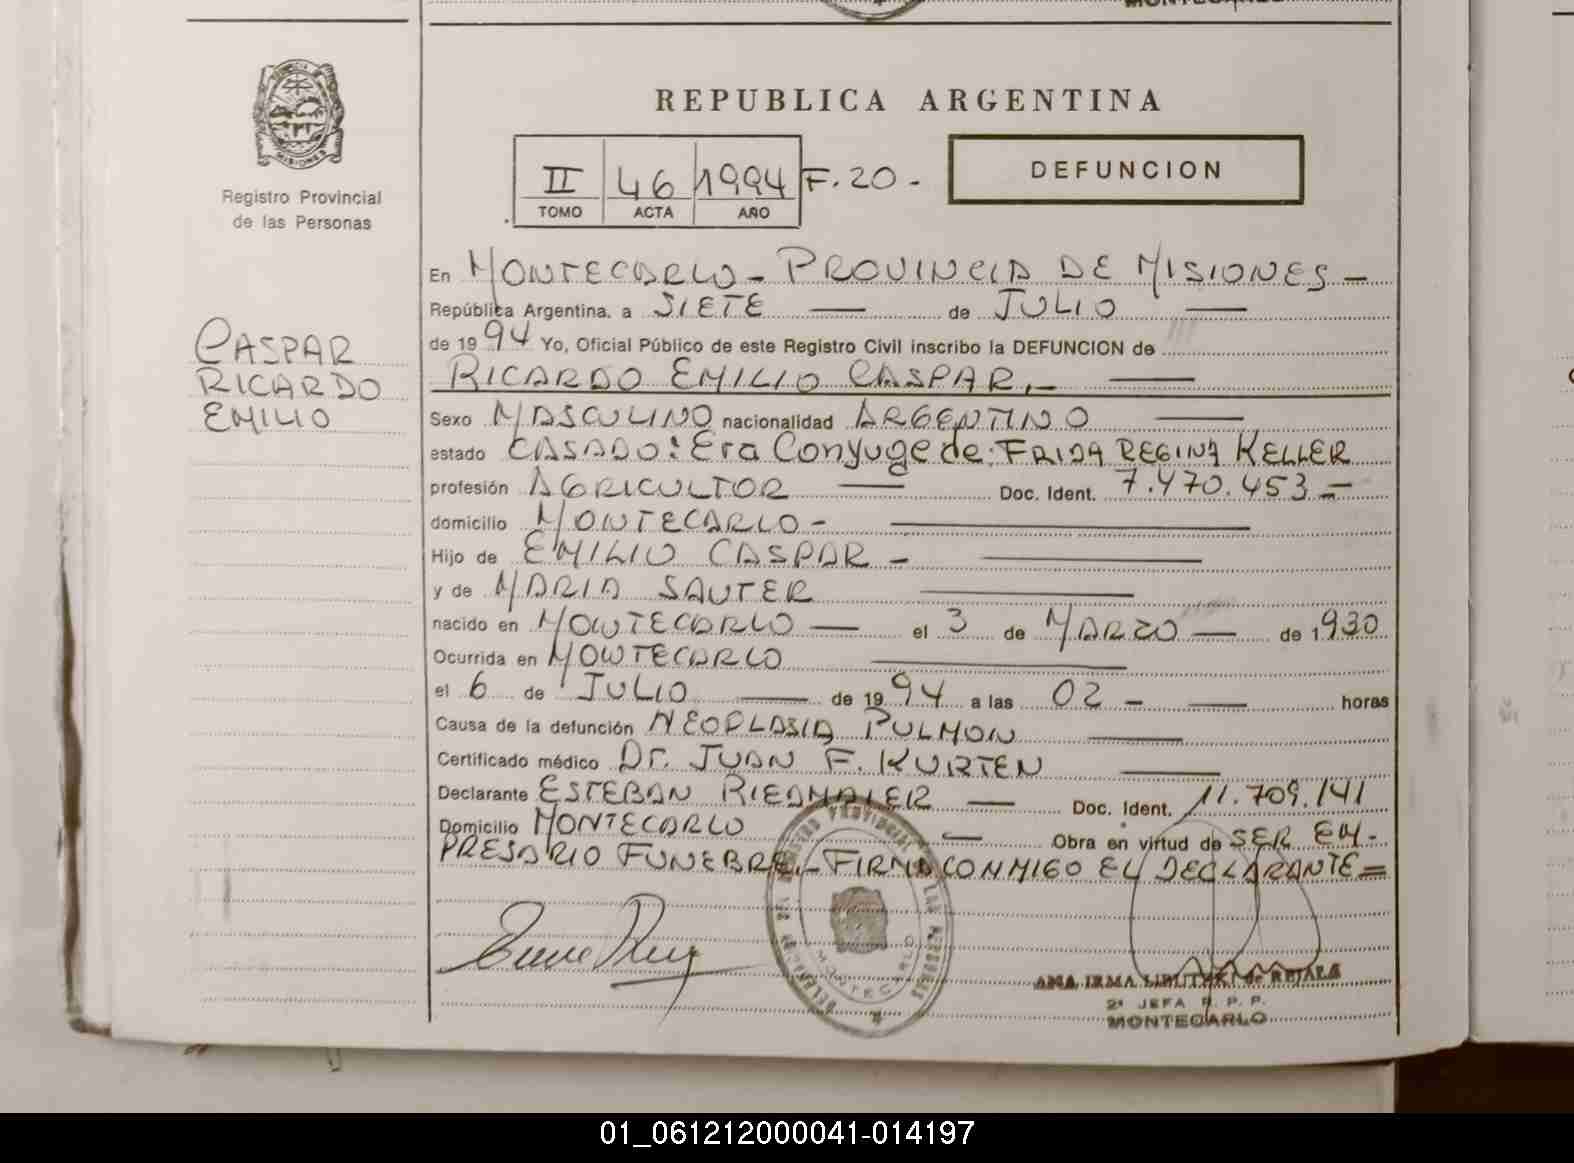 REPUBLICA ARGENTINA
MISIONES
Registro Provincial
de las Personas
DEFUNCION
II 46 1994 F. 20 -
TOMO ACTA AÑO
CASPAR
RICARDO
EMILIO
En MONTECARLO - PROVINCIA DE MISIONES -
República Argentina, a SIETE — de JULIO —
de 1994 Yo, Oficial Público de este Registro Civil inscribo la DEFUNCION de
RICARDO EMILIO CASPAR.- —
Sexo MASCULINO nacionalidad ARGENTINO —
estado CASADO: Era Conyuge de: FRIDA REGINA KELLER
profesión AGRICULTOR — Doc. Ident. 7.470.453 -
domicilio MONTECARLO - —
Hijo de EMILIO CASPAR - —
y de MARIA SAUTER —
nacido en MONTECARLO — el 3 de MARZO — de 1930
Ocurrida en MONTECARLO —
el 6 de JULIO — de 1994 a las 02 - — horas
Causa de la defunción NEOPLASIA PULMON —
Certificado médico Dr. JUAN F. KURTEN —
Declarante ESTEBAN RIEDMAIER — Doc. Ident. 11.709.141
Domicilio MONTECARLO — Obra en virtud de SER EM-
PRESARIO FUNEBRE.- FIRMA CONMIGO EL DECLARANTE =
MONTECARLO
ANA IRMA de
2ª JEFA R. P. P.
MONTECARLO
01_061212000041-014197